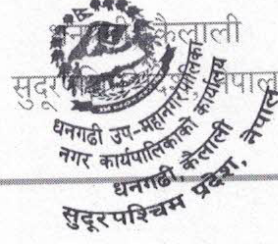 धनगढी, कैलाली
सुदूरपश्चिम प्रदेश, नेपाल
धनगढी उप-महानगरपालिका
नगर कार्यपालिकाको कार्यालय
धनगढी, कैलाली
सुदूरपश्चिम प्रदेश, नेपाल